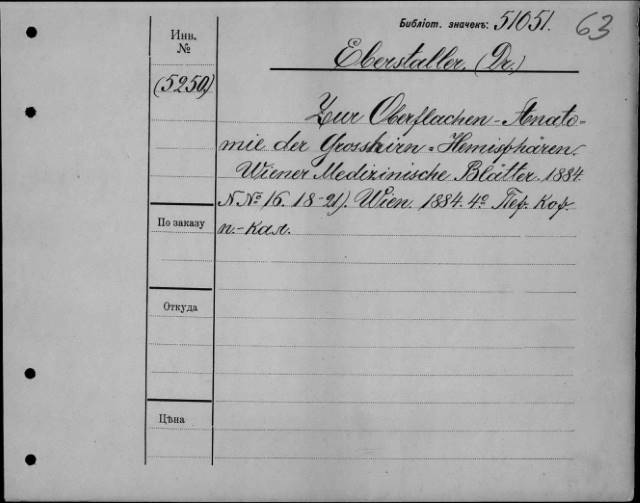 Библіот. значекъ: 51051. 63
Инв.
№
Eberstaller. (Dr.)
(5250)
Zur Oberflachen-Anato-
mie der Grosshirn=Hemisphären.
Wiener Medizinische Blätter. 1884.
N.№ 16. 18-21). Wien. 1884. 4º Пер. кор.
п.-кал.
По заказу
Откуда
Цѣна